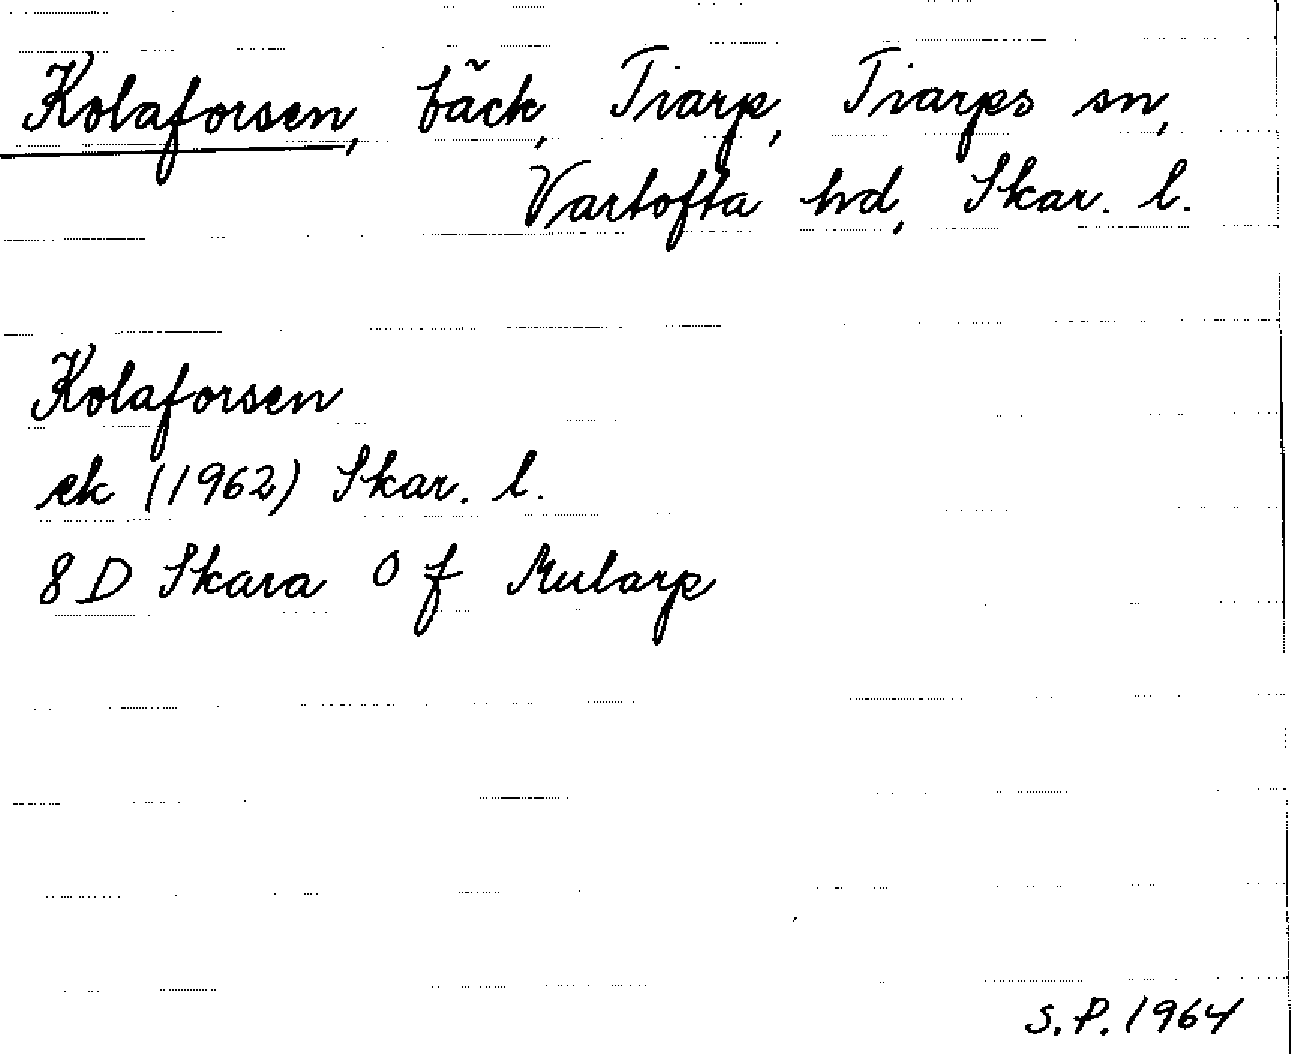 Kolaforsen, bäck, Tiarp, Tiarps sn,
Vartofta hd, Skar. l.
Kolaforsen
ek (1962) Skar. l.
8 D Skara 0 f Mularp
S.P. 1964